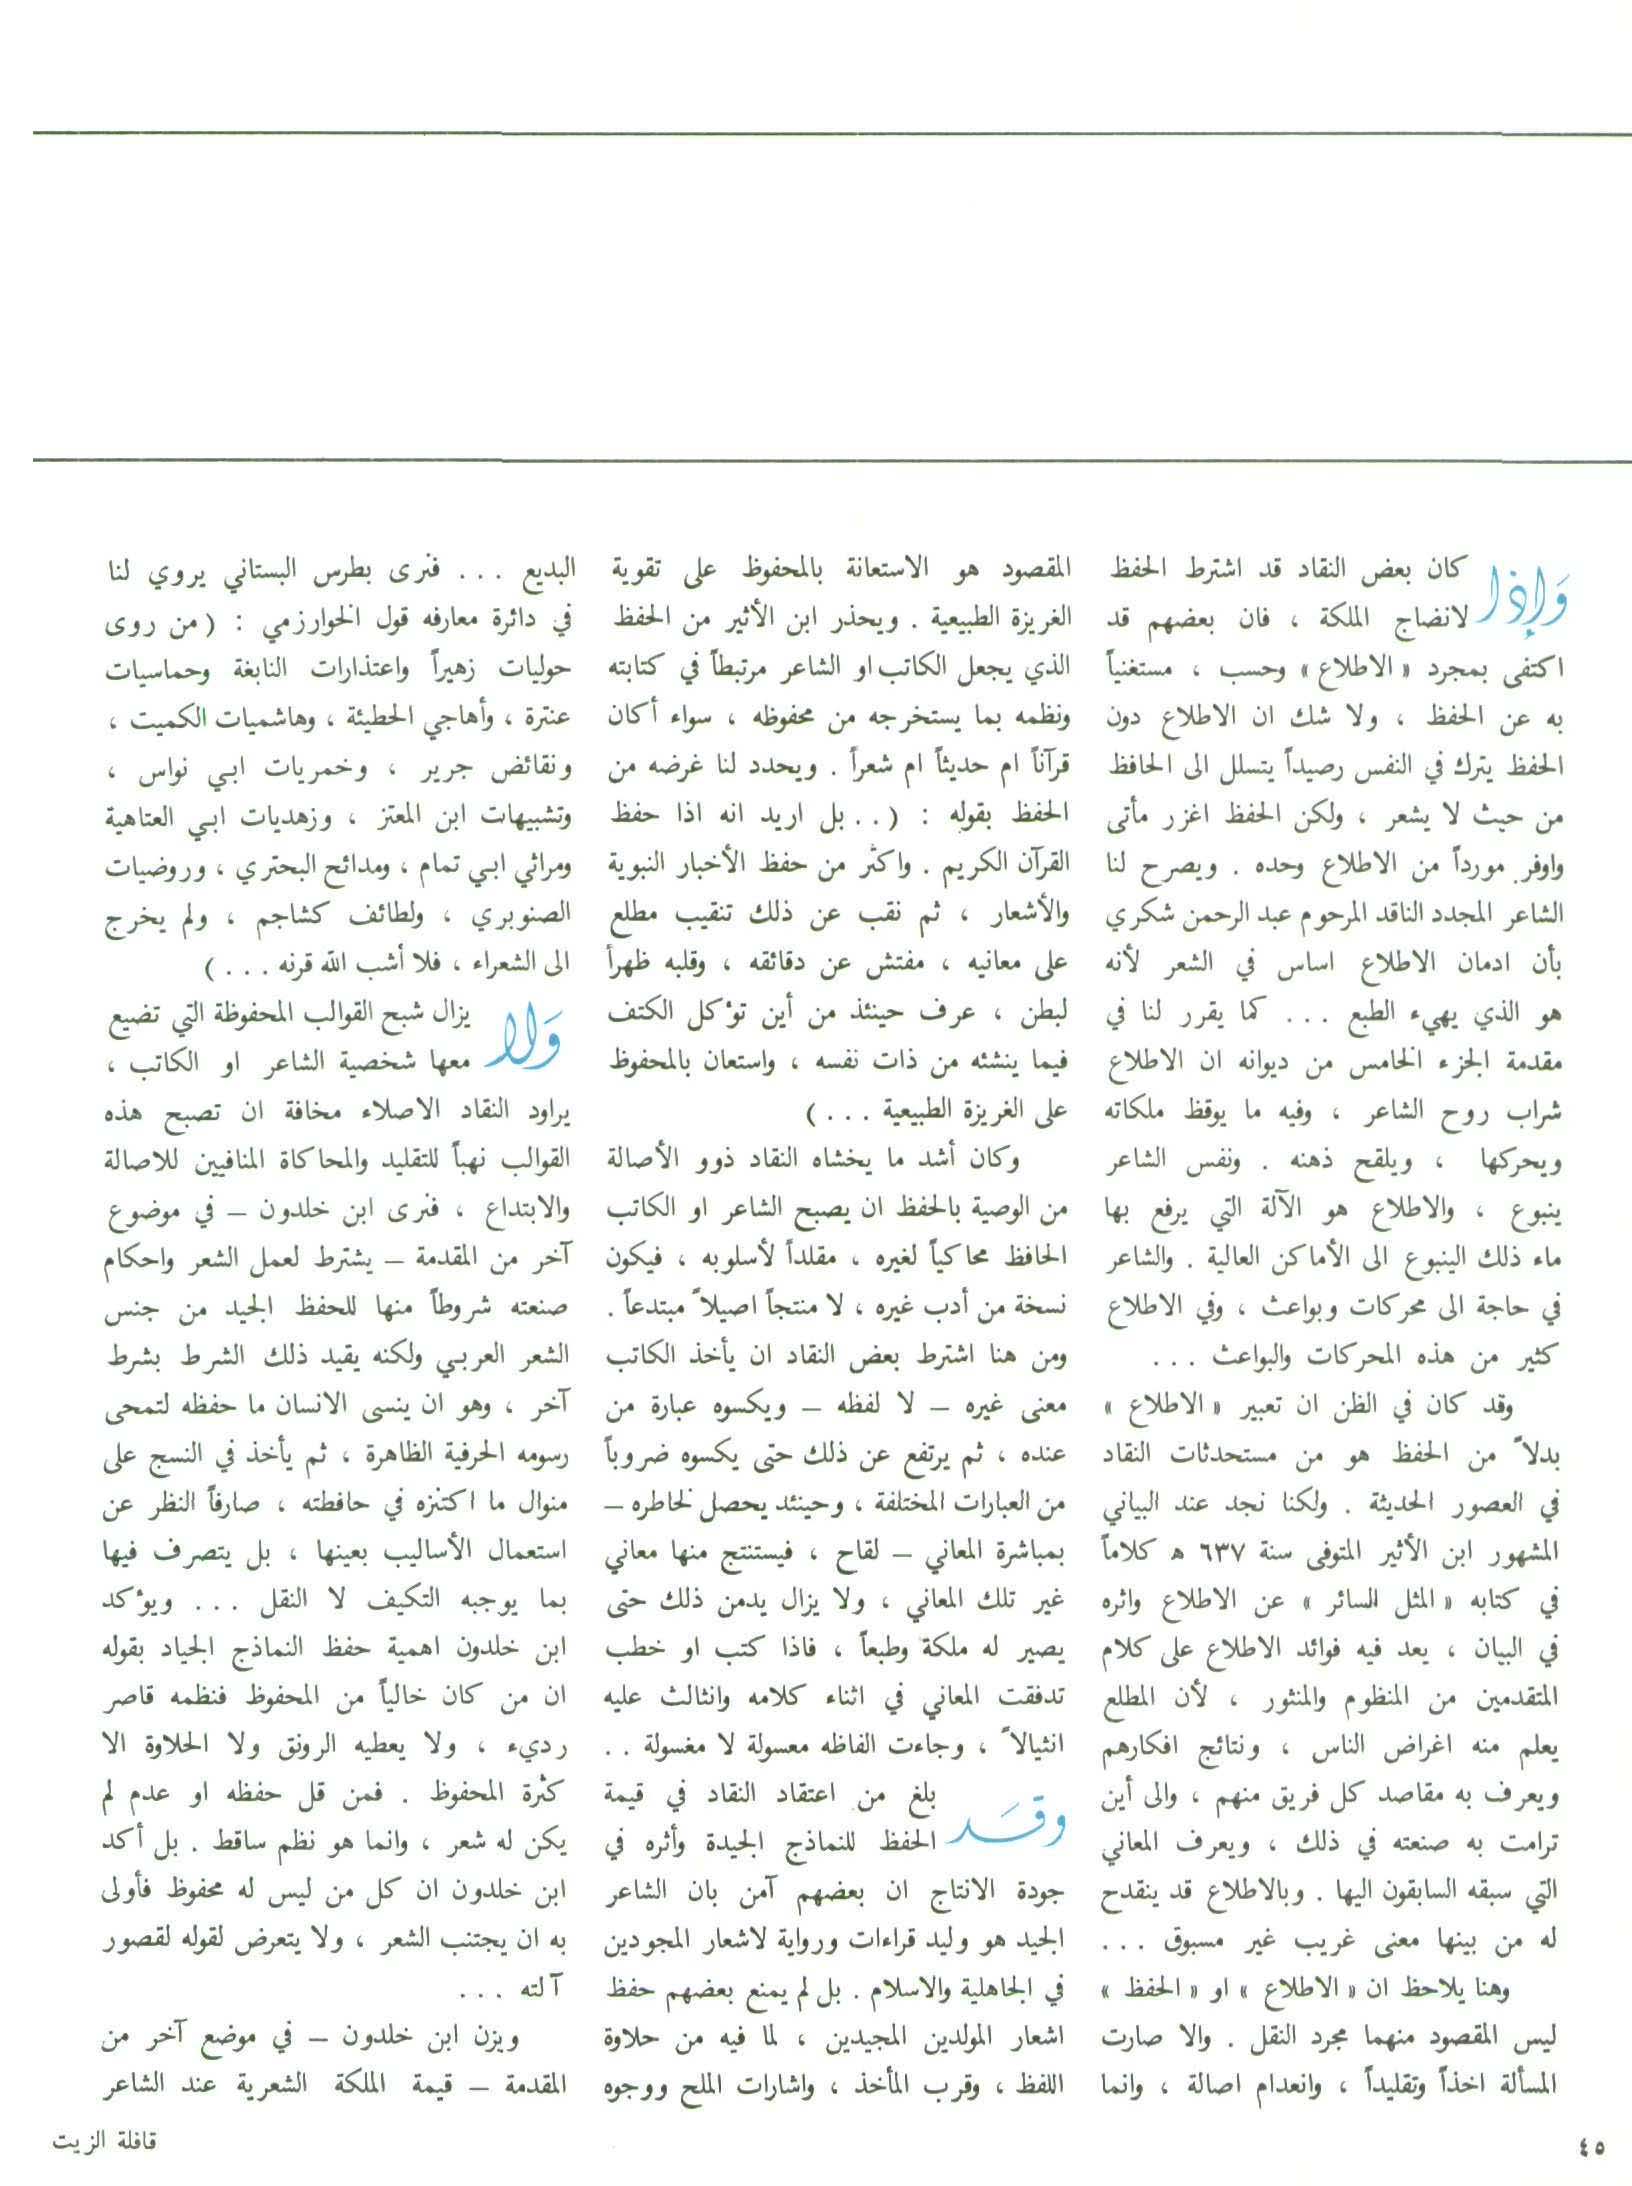 وَإِذا كان بعض النقاد قد اشترط الحفظ
لانضاج الملكة ، فان بعضهم قد
اكتفى بمجرد « الاطلاع » وحسب ، مستغنياً
به عن الحفظ ، ولا شك ان الاطلاع دون
الحفظ يترك في النفس رصيداً يتسلل الى الحافظ
من حيث لا يشعر ، ولكن الحفظ اغزر مأتى
واوفر مورداً من الاطلاع وحده . ويصرح لنا
الشاعر المجدد الناقد المرحوم عبد الرحمن شكري
بأن ادمان الاطلاع اساس في الشعر لأنه
هو الذي يهيء الطبع ... كما يقرر لنا في
مقدمة الجزء الخامس من ديوانه ان الاطلاع
شراب روح الشاعر ، وفيه ما يوقظ ملكاته
ويحركها ، ويلقح ذهنه . ونفس الشاعر
ينبوع ، والاطلاع هو الآلة التي يرفع بها
ماء ذلك الينبوع الى الأماكن العالية . والشاعر
في حاجة الى محركات وبواعث ، وفي الاطلاع
كثير من هذه المحركات والبواعث ...
وقد كان في الظن ان تعبير « الاطلاع »
بدلاً من الحفظ هو من مستحدثات النقاد
في العصور الحديثة . ولكنا نجد عند البياني
المشهور ابن الأثير المتوفى سنة ٦٣٧ ه كلاماً
في كتابه « المثل السائر » عن الاطلاع واثره
في البيان ، يعد فيه فوائد الاطلاع على كلام
المتقدمين من المنظوم والمنثور ، لأن المطلع
يعلم منه اغراض الناس ، ونتائج افكارهم
ويعرف به مقاصد كل فريق منهم ، والى أين
ترامت به صنعته في ذلك ، ويعرف المعاني
التي سبقه السابقون اليها . وبالاطلاع قد ينقدح
له من بينها معنى غريب غير مسبوق ...
وهنا يلاحظ ان « الاطلاع » او « الحفظ »
ليس المقصود منهما مجرد النقل . والا صارت
المسألة اخذاً وتقليداً ، وانعدام اصالة ، وانما
المقصود هو الاستعانة بالمحفوظ على تقوية
الغريزة الطبيعية . ويحذر ابن الأثير من الحفظ
الذي يجعل الكاتب او الشاعر مرتبطاً في كتابته
ونظمه بما يستخرجه من محفوظه ، سواء أكان
قرآناً ام حديثاً ام شعراً . ويحدد لنا غرضه من
الحفظ بقوله : ( .. بل اريد انه اذا حفظ
القرآن الكريم . واكثر من حفظ الأخبار النبوية
والأشعار ، ثم نقب عن ذلك تنقيب مطلع
على معانيه ، مفتش عن دقائقه ، وقلبه ظهراً
لبطن ، عرف حينئذ من أين تؤكل الكتف
فيما ينشئه من ذات نفسه ، واستعان بالمحفوظ
على الغريزة الطبيعية ... )
وكان أشد ما يخشاه النقاد ذوو الأصالة
من الوصية بالحفظ ان يصبح الشاعر او الكاتب
الحافظ محاكياً لغيره ، مقلداً لأسلوبه ، فيكون
نسخة من أدب غيره ، لا منتجاً اصيلاً مبتدعاً .
ومن هنا اشترط بعض النقاد ان يأخذ الكاتب
معنى غيره – لا لفظه – ويكسوه عبارة من
عنده ، ثم يرتفع عن ذلك حتى يكسوه ضروباً
من العبارات المختلفة ، وحينئد يحصل لخاطره –
بمباشرة المعاني – لقاح ، فيستنتج منها معاني
غير تلك المعاني ، ولا يزال يدمن ذلك حتى
يصير له ملكة وطبعاً ، فاذا كتب او خطب
تدفقت المعاني في اثناء كلامه وانثالث عليه
انثيالاً ، وجاءت الفاظه معسولة لا مغسولة ..
وقد بلغ من اعتقاد النقاد في قيمة
الحفظ للنماذج الجيدة وأثره في
جودة الانتاج ان بعضهم آمن بان الشاعر
الجيد هو وليد قراءات ورواية لاشعار المجودين
في الجاهلية والاسلام . بل لم يمنع بعضهم حفظ
اشعار المولدين المجيدين ، لما فيه من حلاوة
اللفظ ، وقرب المأخذ ، واشارات الملح ووجوه
البديع ... فنرى بطرس البستاني يروي لنا
في دائرة معارفه قول الخوارزمي : ( من روى
حوليات زهيراً واعتذارات النابغة وحماسيات
عنترة ، وأهاجي الحطيئة ، وهاشميات الكميت ،
ونقائض جرير ، وخمريات ابي نواس ،
وتشبيهات ابن المعتز ، وزهديات ابي العتاهية
ومراثي ابي تمام ، ومدائح البحتري ، وروضيات
الصنوبري ، ولطائف كشاجم ، ولم يخرج
الى الشعراء ، فلا أشب الله قرنه ... )
وَلا يزال شبح القوالب المحفوظة التي تضيع
معها شخصية الشاعر او الكاتب ،
يراود النقاد الاصلاء مخافة ان تصبح هذه
القوالب نهباً للتقليد والمحاكاة المنافيين للاصالة
والابتداع ، فنرى ابن خلدون – في موضوع
آخر من المقدمة – يشترط لعمل الشعر واحكام
صنعته شروطاً منها للحفظ الجيد من جنس
الشعر العربي ولكنه يقيد ذلك الشرط بشرط
آخر ، وهو ان ينسى الانسان ما حفظه لتمحى
رسومه الحرفية الظاهرة ، ثم يأخذ في النسج على
منوال ما اكتنزه في حافطته ، صارفاً النظر عن
استعمال الأساليب بعينها ، بل يتصرف فيها
بما يوجبه التكيف لا النقل ... ويؤكد
ابن خلدون اهمية حفظ النماذج الجياد بقوله
ان من كان خالياً من المحفوظ فنظمه قاصر
رديء ، ولا يعطيه الرونق ولا الحلاوة الا
كثرة المحفوظ . فمن قل حفظه او عدم لم
يكن له شعر ، وانما هو نظم ساقط . بل أكد
ابن خلدون ان كل من ليس له محفوظ فأولى
به ان يجتنب الشعر ، ولا يتعرض لقوله لقصور
آلته ...
ويزن ابن خلدون – في موضع آخر من
المقدمة – قيمة الملكة الشعرية عند الشاعر
٤٥
قافلة الزيت